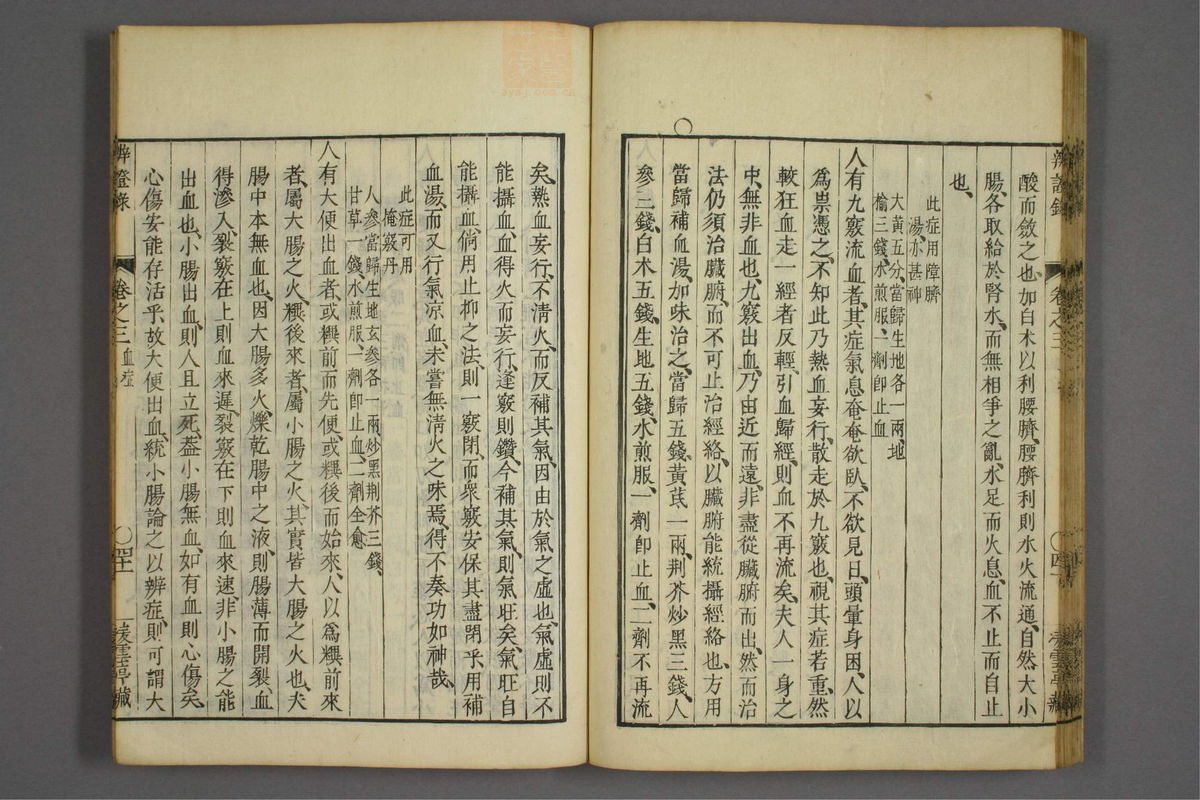 酸而斂之也、加白朮以利腰臍、腰臍利則水火流通、自然大小
腸、各取給於腎水、而無相爭之亂、水足而火息、血不止而自止
也、
此症用障臍
湯亦甚神
大黃五分、當歸生地各一兩、地
榆三錢、水煎服、一劑卽止血
人有九竅流血者、其症氣息奄奄欲臥、不欲見日、頭暈身困、人以
爲祟憑之、不知此乃熱血妄行、散走於九竅也、視其症若重、然
較狂血走一經者反輕、引血歸經、則血不再流矣、夫人一身之
中、無非血也、九竅出血、乃由近而遠、非盡從臟腑而出、然而治
法仍須治臟腑、而不可止治經絡、以臟腑能統攝經絡也、方用
當歸補血湯、加味治之、當歸五錢、黃芪一兩、荆芥炒黑三錢、人
參三錢、白朮五錢、生地五錢、水煎服、一劑卽止血、二劑不再流
辨證錄
卷之三
凌雲亭藏
矣、熱血妄行、不淸火、而反補其氣、因由於氣之虛也、氣虛則不
能攝血、血得火而妄行、逢竅則鑽、今補其氣、則氣旺矣、氣旺自
能攝血、倘用止抑之法、則一竅閉、而衆竅安保其盡閉乎、用補
血湯、而又行氣涼血、未嘗無淸火之味焉、得不奏功如神哉、
此症可用
掩竅丹
人參當歸生地玄參各一兩炒黑荆芥三錢、
甘草一錢、水煎服、一劑卽止血、二劑全愈
人有大便出血者、或糞前而先便、或糞後而始來、人以爲糞前來
者、屬大腸之火、糞後來者、屬小腸之火、其實皆大腸之火也、夫
腸中本無血也、因大腸多火、爍乾腸中之液、則腸薄而開裂、血
得滲入、裂竅在上則血來遲、裂竅在下則血來速、非小腸之能
出血也、小腸出血、則人且立死、蓋小腸無血、如有血則心傷矣、
心傷安能存活乎、故大便出血、統小腸論之以辨症、則可謂大
辨證錄
卷之三 血症
凌雲亭藏